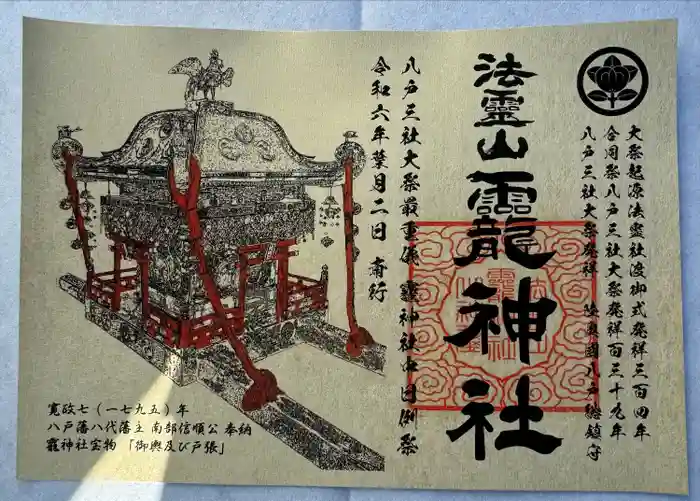 大祭起源法霊社渡御式発祥三百四年
合同祭八戸三社大祭発祥百三十九年
八戸三社大祭発祥 陸奥國八戸総鎮守
法靈山龗神社
八戸三社大祭最重儀 龗神社中日例祭
令和六年葉月二日 斎行
寛政七（一七九五）年
八戸藩八代藩主 南部信順公 奉納
龗神社宝物 「御輿及び戸張」